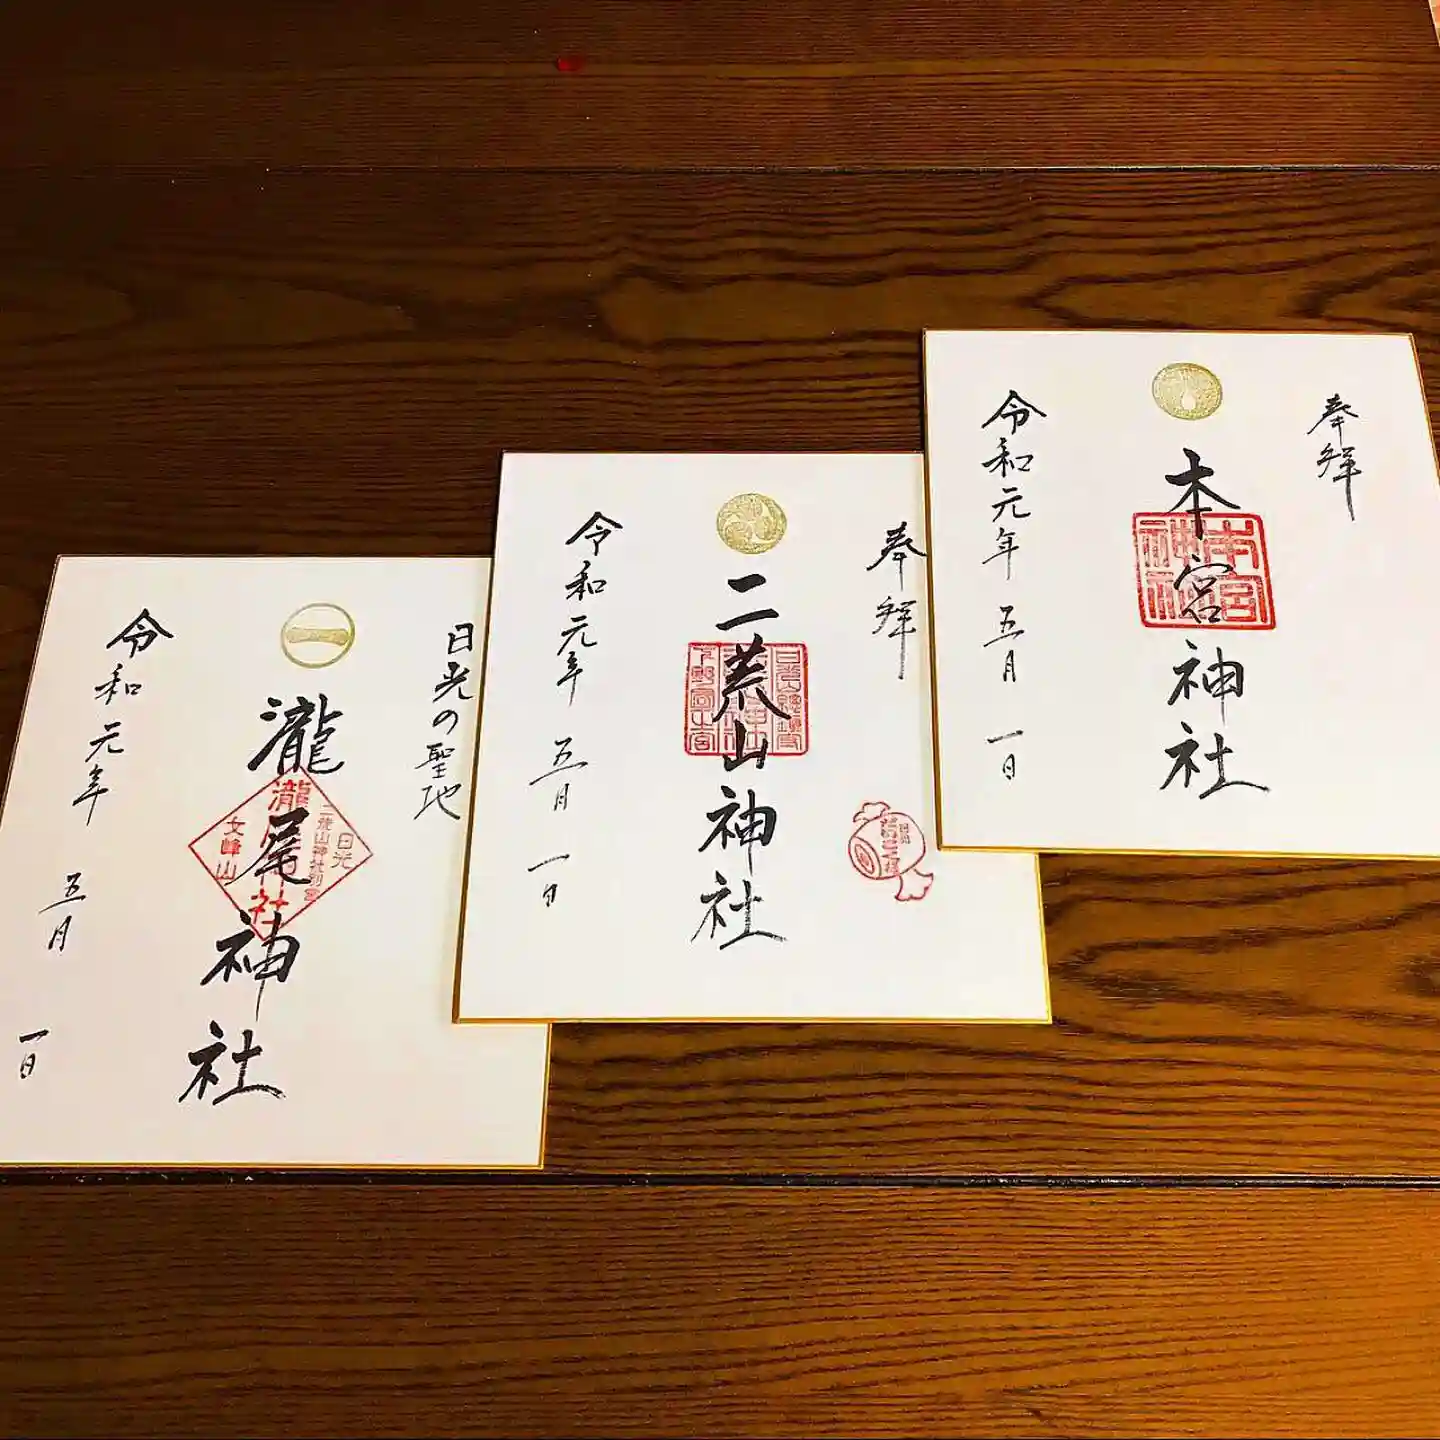 奉拝
本宮神社
本宮
神社
令和元年 五月 一日
奉拝
二荒山神社
令和元年 五月 一日
日光の聖地
瀧尾神社
日光
二荒山神社別宮
瀧尾神社
女峰山
令和元年 五月 一日